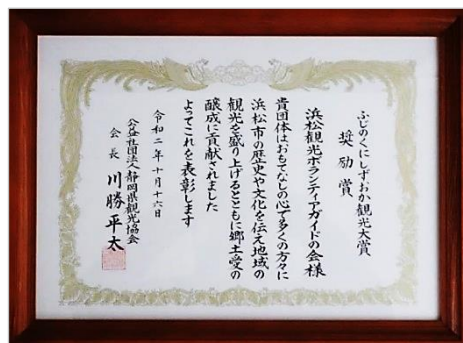 ふじのくにしずおか観光大賞
奨励賞
浜松観光ボランティアガイドの会様
貴団体はおもてなしの心で多くの方々に
浜松市の歴史や文化を伝え地域の
観光を盛り上げるとともに郷土愛の
醸成に貢献されました
よってこれを表彰します
令和二年十月十六日
公益社団法人静岡県観光協会
会長 川勝平太